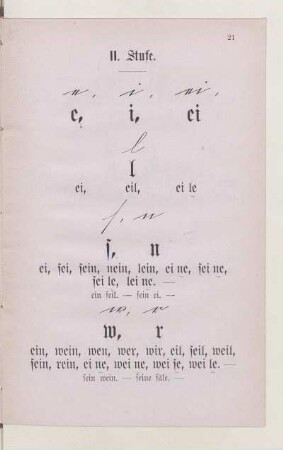 21
II. Stufe.
e, i, ei,
e, i, ei
l
l
ei, eil, ei le
s, n
ſ, n
ei, ſei, ſein, nein, lein, ei ne, ſei ne,
ſei le, lei ne. —
ein ſeil. — ſein ei. —
w, r
w, r
ein, wein, wen, wer, wir, eil, ſeil, weil,
ſein, rein, ei ne, wei ne, wei ſe, wei le. —
ſein wein. — ſeine